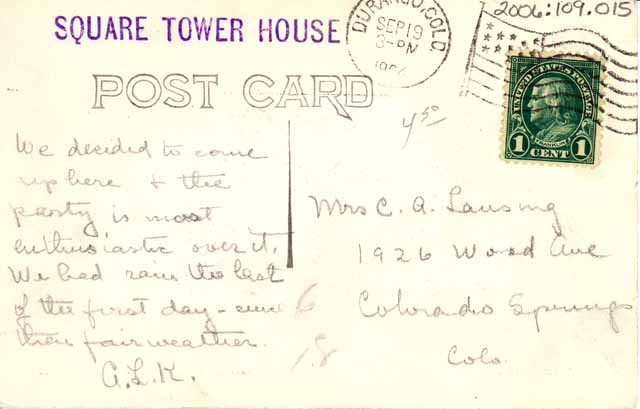 SQUARE TOWER HOUSE
DURANGO, COLO.
SEP 19
3-PM
2006:109.015
POST CARD
UNITED STATES POSTAGE
FRANKLIN
1 CENT 1
4 50
We decided to come
up here + the
party is most
enthusiastic over it.
We had rain the last
of the first day - since
then fair weather.
A.L.K.
6
18
Mrs C. A. Lansing
1926 Wood Ave
Colorado Springs
Colo.